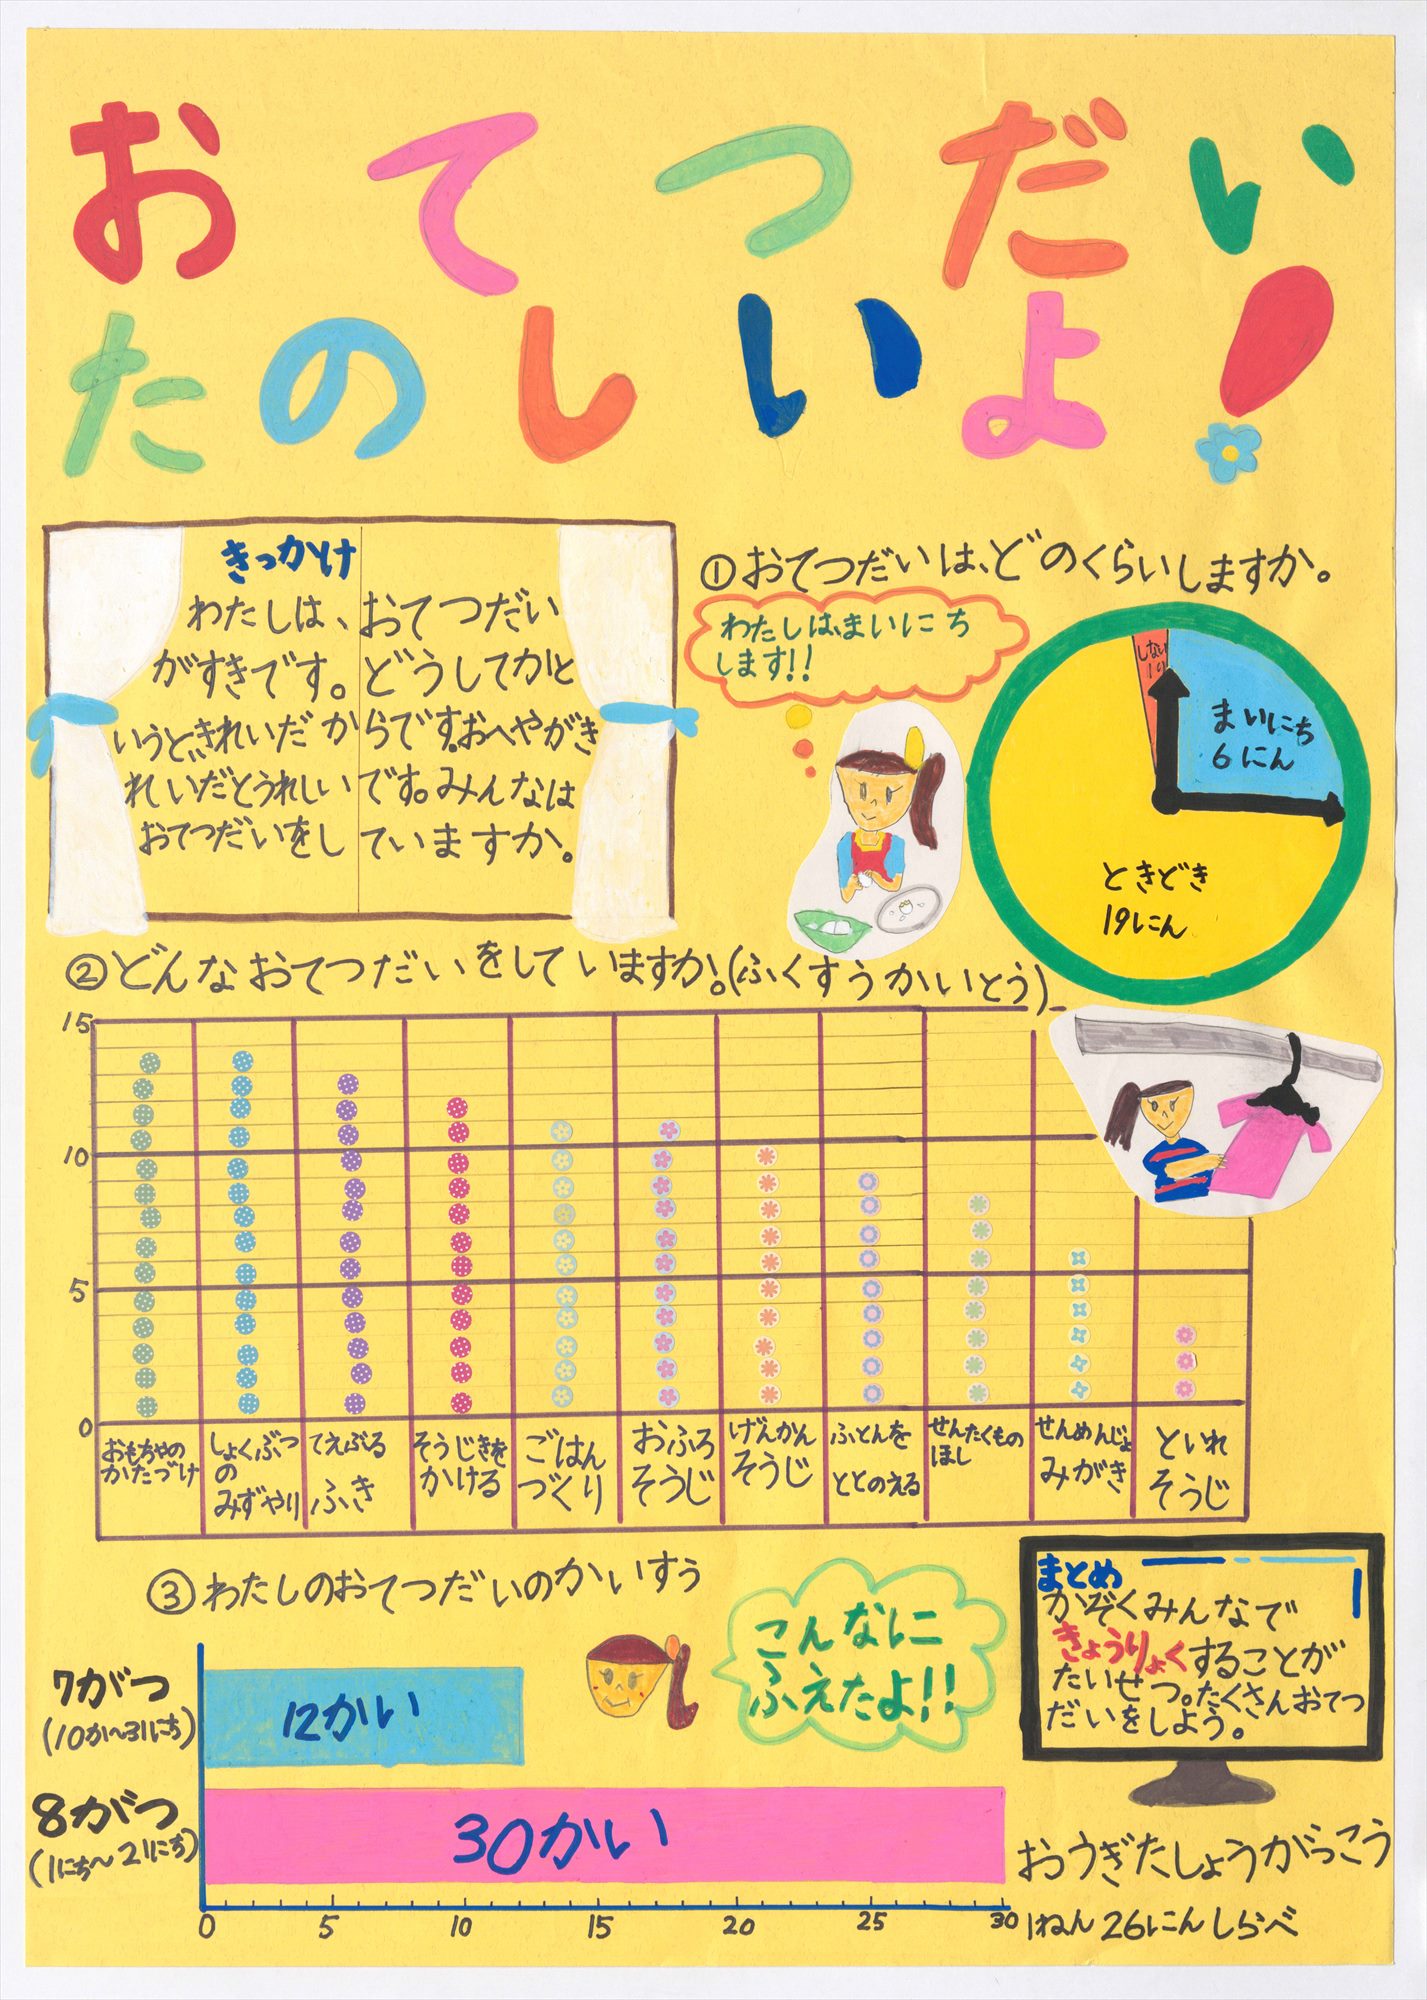 おてつだい
たのしいよ!
きっかけ
わたしは、おてつだい
がすきです。どうしてかと
いうと、きれいだからです。おへやがき
れいだとうれしいです。みんなは
おてつだいをしていますか。
①おてつだいは、どのくらいしますか。
わたしは、まいにち
します!!
しない
1り
まいにち
6にん
ときどき
19にん
②どんなおてつだいをしていますか。(ふくすうかいとう)
15
10
5
0
おもちゃの
かたづけ
しょくぶつ
の
みずやり
てえぶる
ふき
そうじきを
かける
ごはん
づくり
おふろ
そうじ
げんかん
そうじ
ふとんを
ととのえる
せんたくもの
ほし
せんめんじょ
みがき
といれ
そうじ
③わたしのおてつだいのかいすう
7がつ
(10か~31にち)
12かい
8がつ
(1にち~21にち)
30かい
0 5 10 15 20 25 30
こんなに
ふえたよ!!
まとめ
かぞくみんなで
きょうりょくすることが
たいせつ。たくさんおてつ
だいをしよう。
おうぎたしょうがっこう
1ねん26にんしらべ